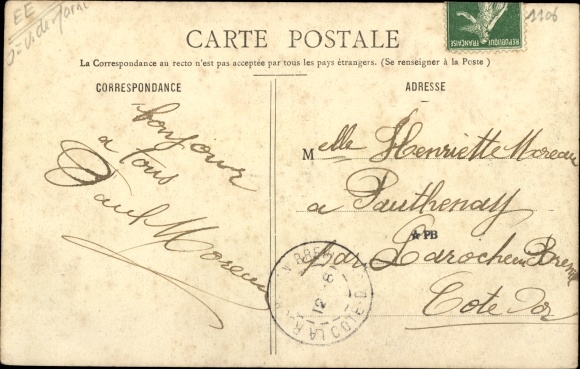 EE
1106
RÉPUBLIQUE FRANÇAISE
CARTE POSTALE
La Correspondance au recto n'est pas acceptée par tous les pays étrangers. (Se renseigner à la Poste)
CORRESPONDANCE
bonjour
a tous
Paul Moreau
ADRESSE
Melle Henriette Moreau
a Pauthenay
★ PB
par Laroche en Brenil
Cote d'or
COTE-D'OR